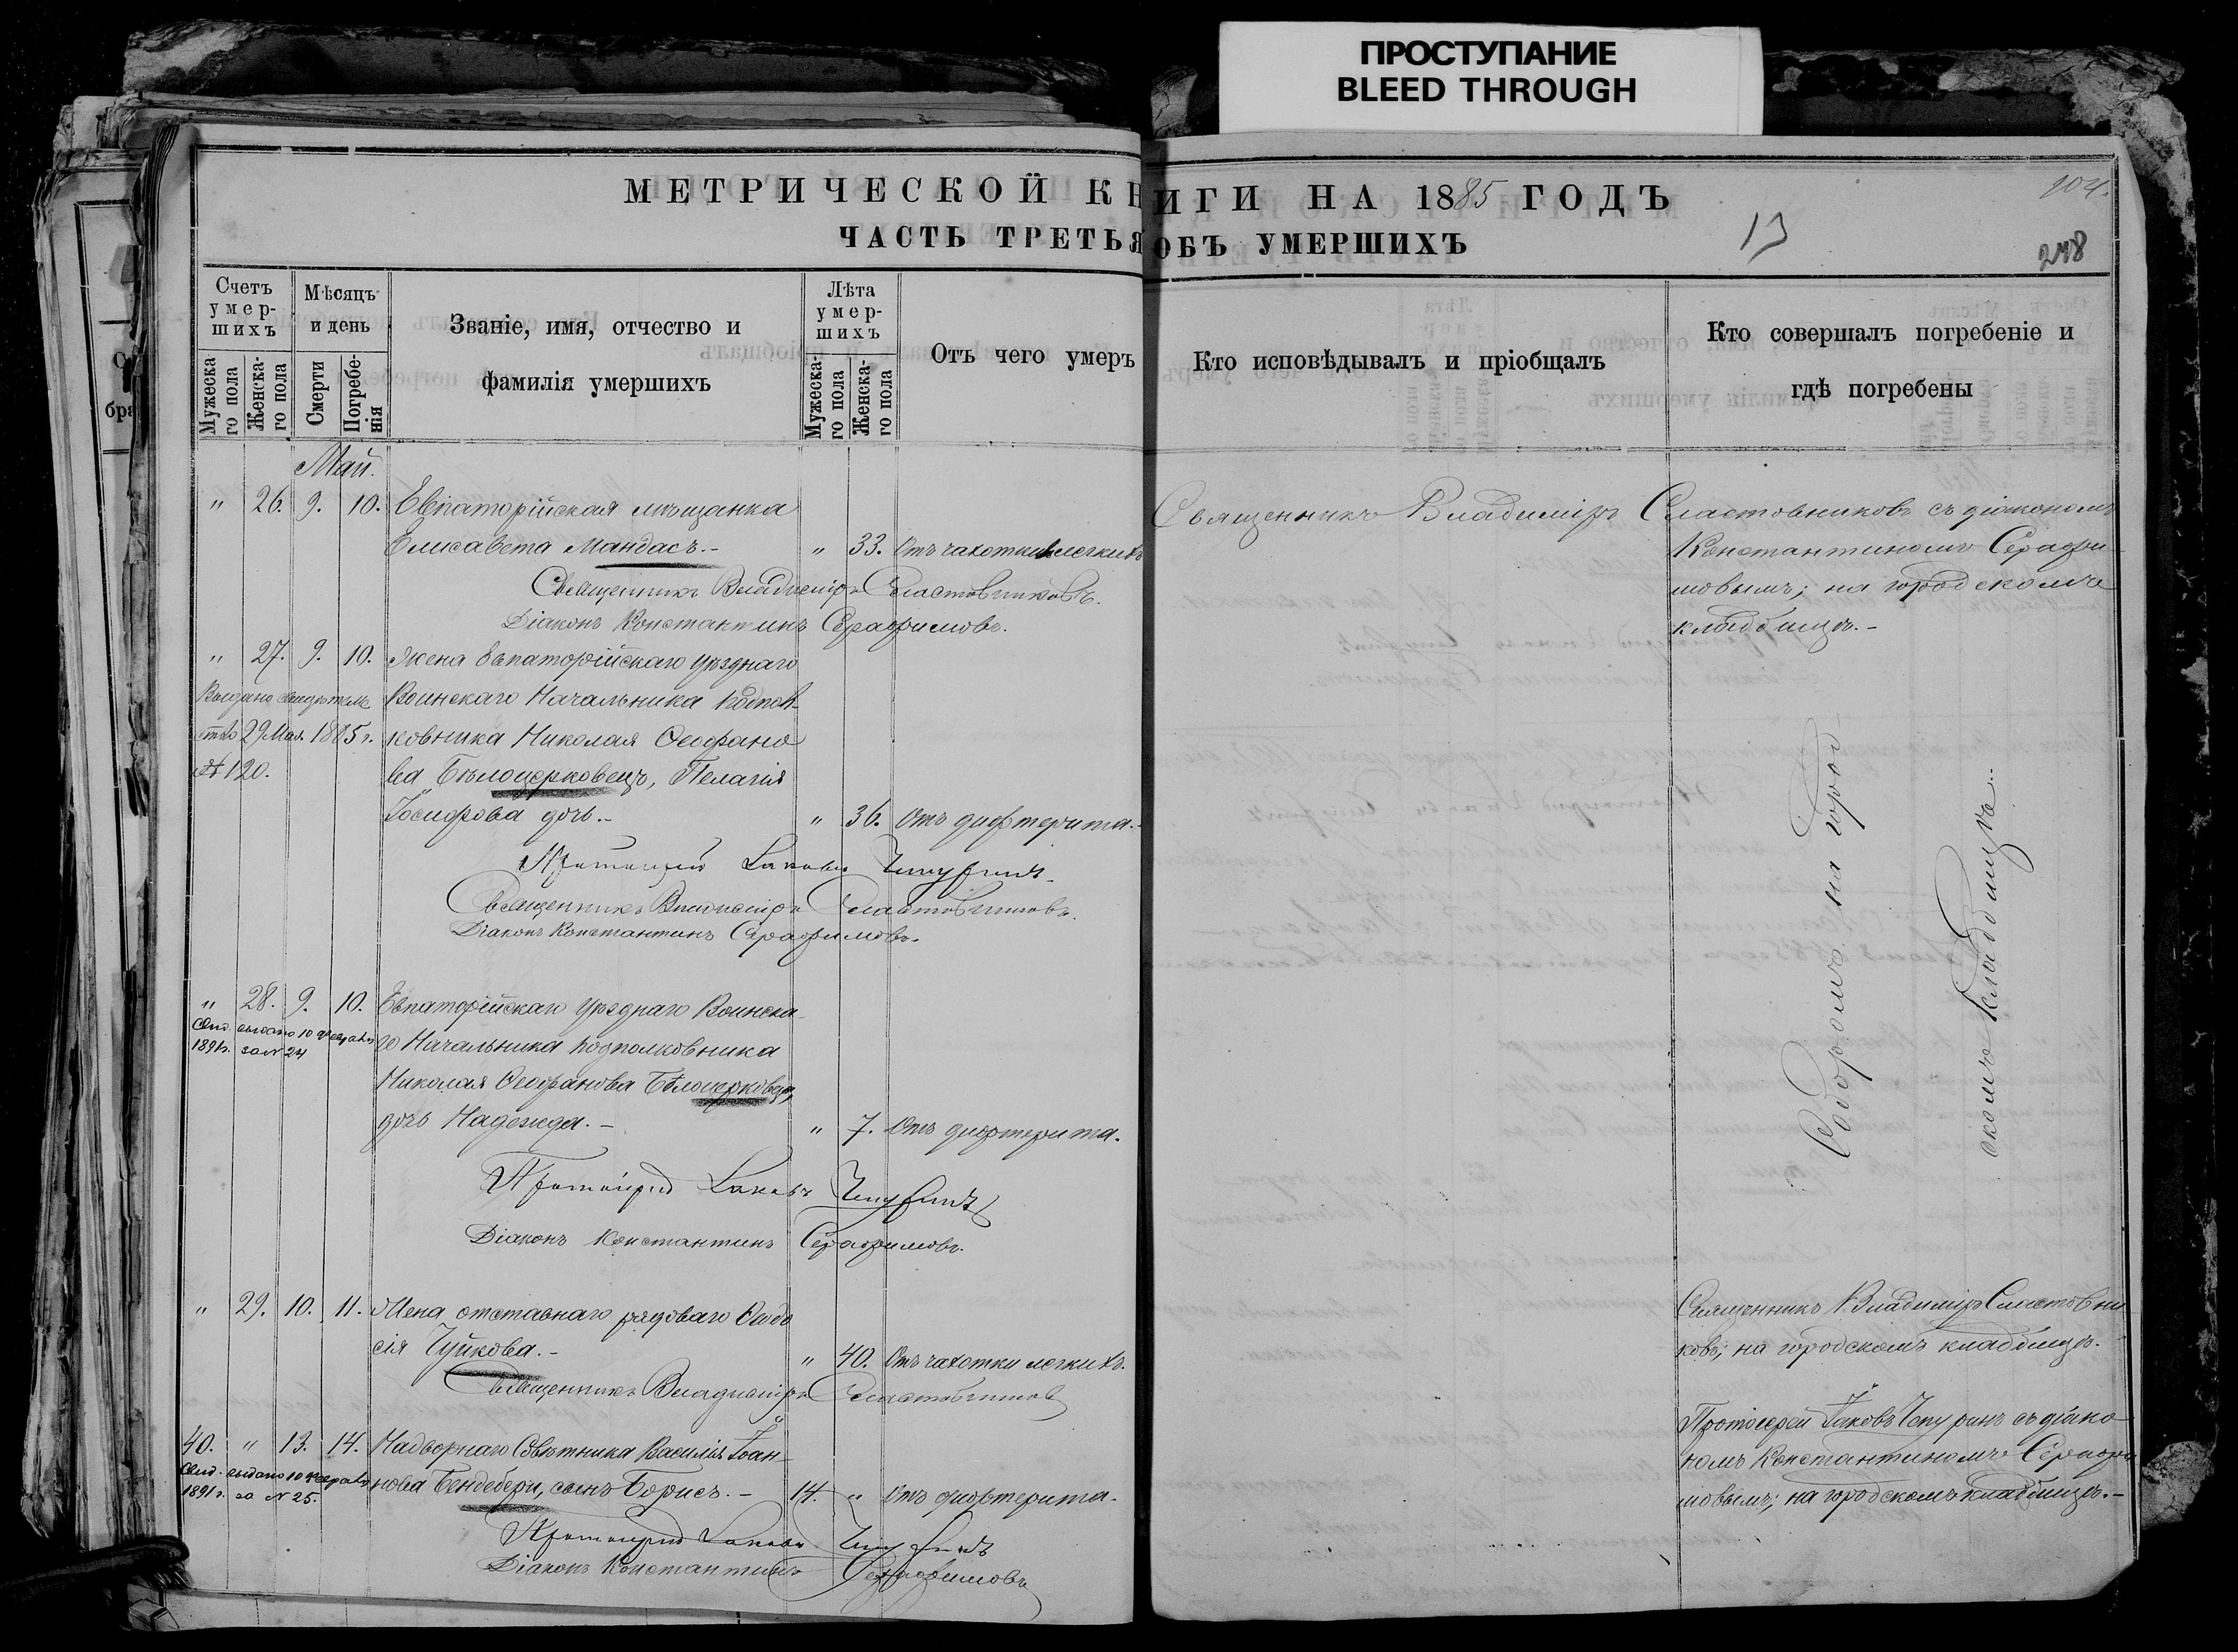 ПРОСТУПАНИЕ
BLEED THROUGH
МЕТРИЧЕСКОЙ КНИГИ НА 1885 ГОДЪ
104.
ЧАСТЬ ТРЕТЬЯ ОБЪ УМЕРШИХЪ
13
248
Счетъ умер-шихъ
Мужеска-го пола
Женска-го пола
Мѣсяцъ и день
Смерти
Погребе-нія
Званіе, имя, отчество и
фамилія умершихъ
Лѣта умер-шихъ
Мужеска-го пола
Женска-го пола
Отъ чего умеръ
Кто исповѣдывалъ и пріобщалъ
Кто совершалъ погребеніе и
гдѣ погребены
Май.
" 26. 9. 10. Евпаторійская мѣщанка
Елисавета Мандасъ.- " 33. Отъ чахотки легкихъ
Священникъ Владиміръ Сластовниковъ.
Діаконъ Константинъ Серафимовъ.
Священникъ Владиміръ Сластовниковъ съ діакономъ
Константиномъ Серафи-
мовымъ; на городскомъ
кладбищѣ.-
" 27. 9. 10. Жена Евпаторійскаго Уѣзднаго
Воинскаго Начальника Подпол-
ковника Николая Ѳеофано-
ва Бѣлоцерковецъ, Пелагія
Іосифова дочь.- " 36. Отъ дифтерита.-
Выдано свидѣтель-
ство 29 Мая 1885 г.
№ 120.
Протоіерей Іаковъ Чепуринъ.
Священникъ Владиміръ Сластовниковъ.
Діаконъ Константинъ Серафимовъ.
Соборомъ на город-
скомъ кладбищѣ.-
" 28. 9. 10. Евпаторійскаго Уѣзднаго Воинска-
го Начальника Подполковника
Николая Ѳеофанова Бѣлоцерковецъ,
дочь Надежда.- " 7. Отъ дифтерита.
Свид. выдано 10 февраля
1891 г. за № 24
Протоіерей Іаковъ Чепуринъ
Діаконъ Константинъ Серафимовъ.
" 29. 10. 11. Жена отставнаго рядоваго Ѳеодо-
сія Чуйкова.- " 40. Отъ чахотки легкихъ.
Священникъ Владиміръ Сластовниковъ
Священникъ Владиміръ Сластовни-
ковъ; на городскомъ кладбищѣ.-
40. " 13. 14. Надворнаго Совѣтника Василія Іоан-
нова Бендебери, сынъ Борисъ.- 14. " Отъ дифтерита.
Свид. выдано 10 февраля
1891 г. за № 25.
Протоіерей Іаковъ Чепуринъ
Діаконъ Константинъ Серафимовъ
Протоіерей Іаковъ Чепуринъ съ діако-
номъ Константиномъ Серафи-
мовымъ; на городскомъ кладбищѣ.-